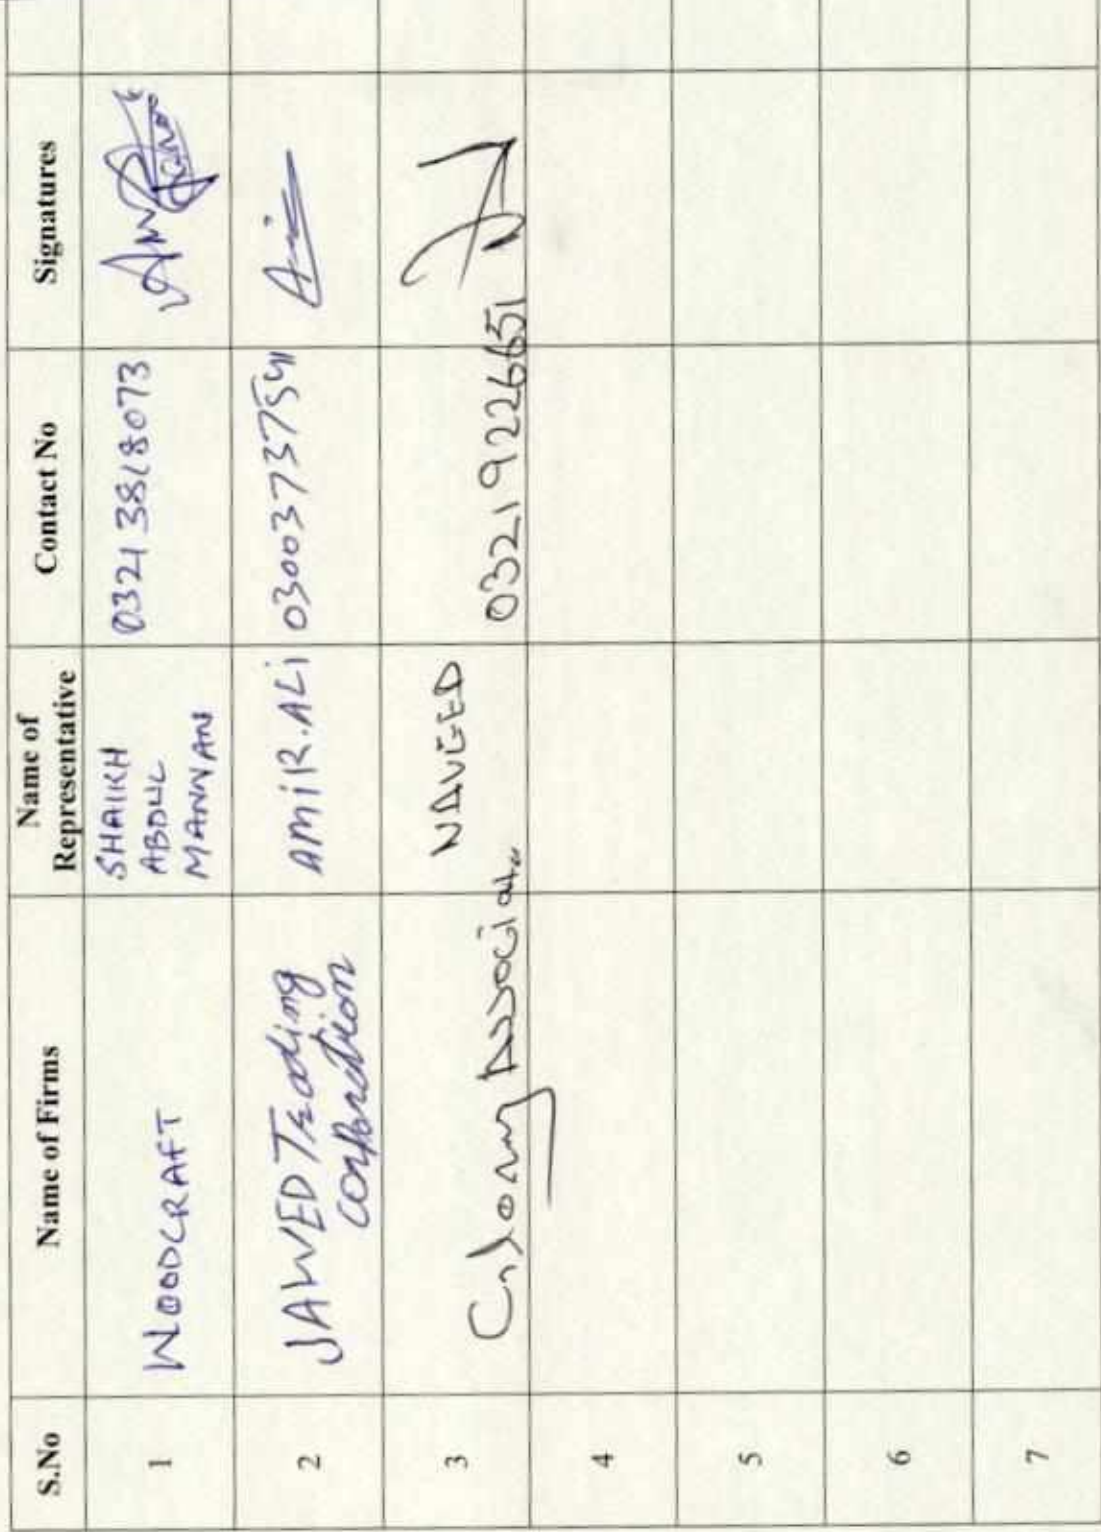 S.No Name of Firms Name of Representative Contact No Signatures
1 WOODCRAFT SHAIKH ABDUL MANNAN 0321 3818073
2 JAWED Trading Corporation AMIR.ALI 03003737541
3 Associate NAVEED 03219226651
4
5
6
7